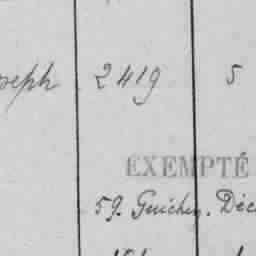 seph 2419 5
EXEMPTÉ
59. Guichen. Déc